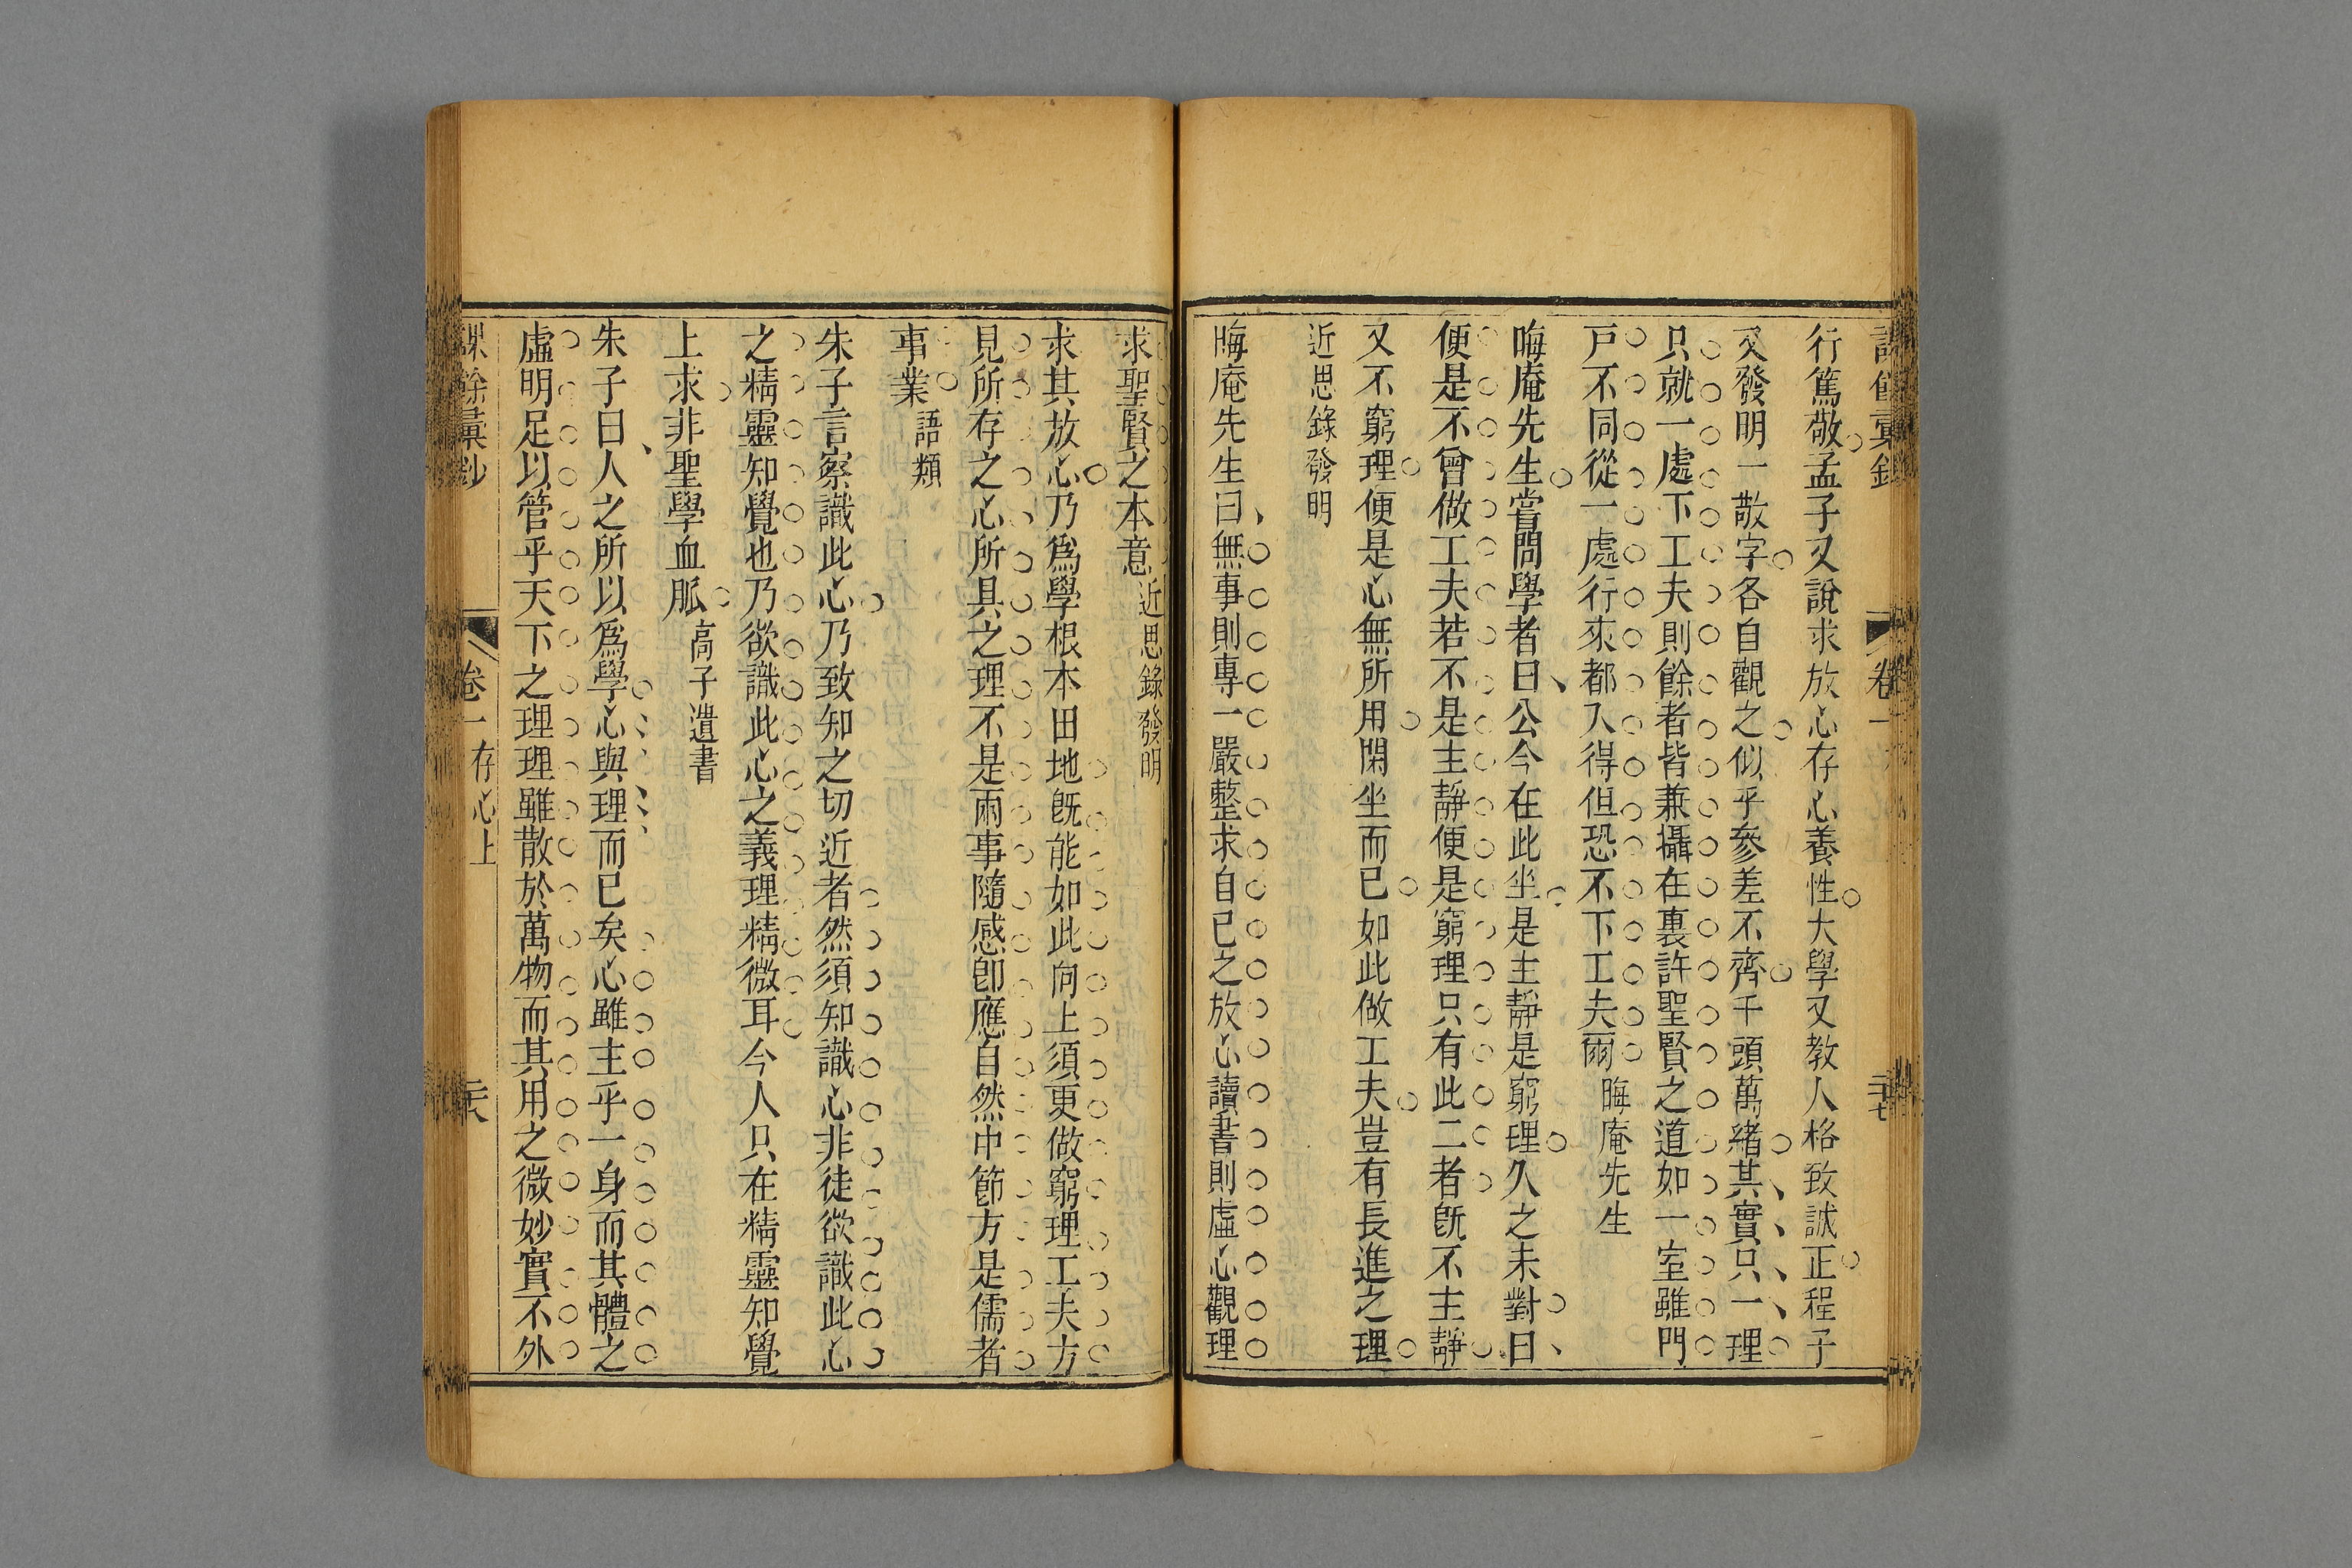 行篤敬孟子又說求放心存心養性大學又教人格致誠正程子
又發明一敬字各自觀之似乎參差不齊千頭萬緒其實只一理
只就一處下工夫則餘者皆兼攝在裏許聖賢之道如一室雖門
戸不同從一處行來都入得但恐不下工夫爾晦庵先生
晦庵先生嘗問學者曰公今在此坐是主靜是窮理久之未對曰
便是不曾做工夫若不是主靜便是窮理只有此二者旣不主靜
又不窮理便是心無所用閑坐而已如此做工夫豈有長進之理
近思錄發明
晦庵先生曰無事則專一嚴整求自已之放心讀書則虛心觀理
卷一
二十七
求聖賢之本意近思錄發明
求其放心乃爲學根本田地旣能如此向上須更做窮理工夫方
見所存之心所具之理不是兩事隨感卽應自然中節方是儒者
事業語類
朱子言察識此心乃致知之切近者然須知識心非徒欲識此心
之精靈知覺也乃欲識此心之義理精微耳今人只在精靈知覺
上求非聖學血脈高子遺書
朱子曰人之所以爲學心與理而已矣心雖主乎一身而其體之
虛明足以管乎天下之理理雖散於萬物而其用之微妙實不外
課餘彙鈔
卷一存心上
二十六